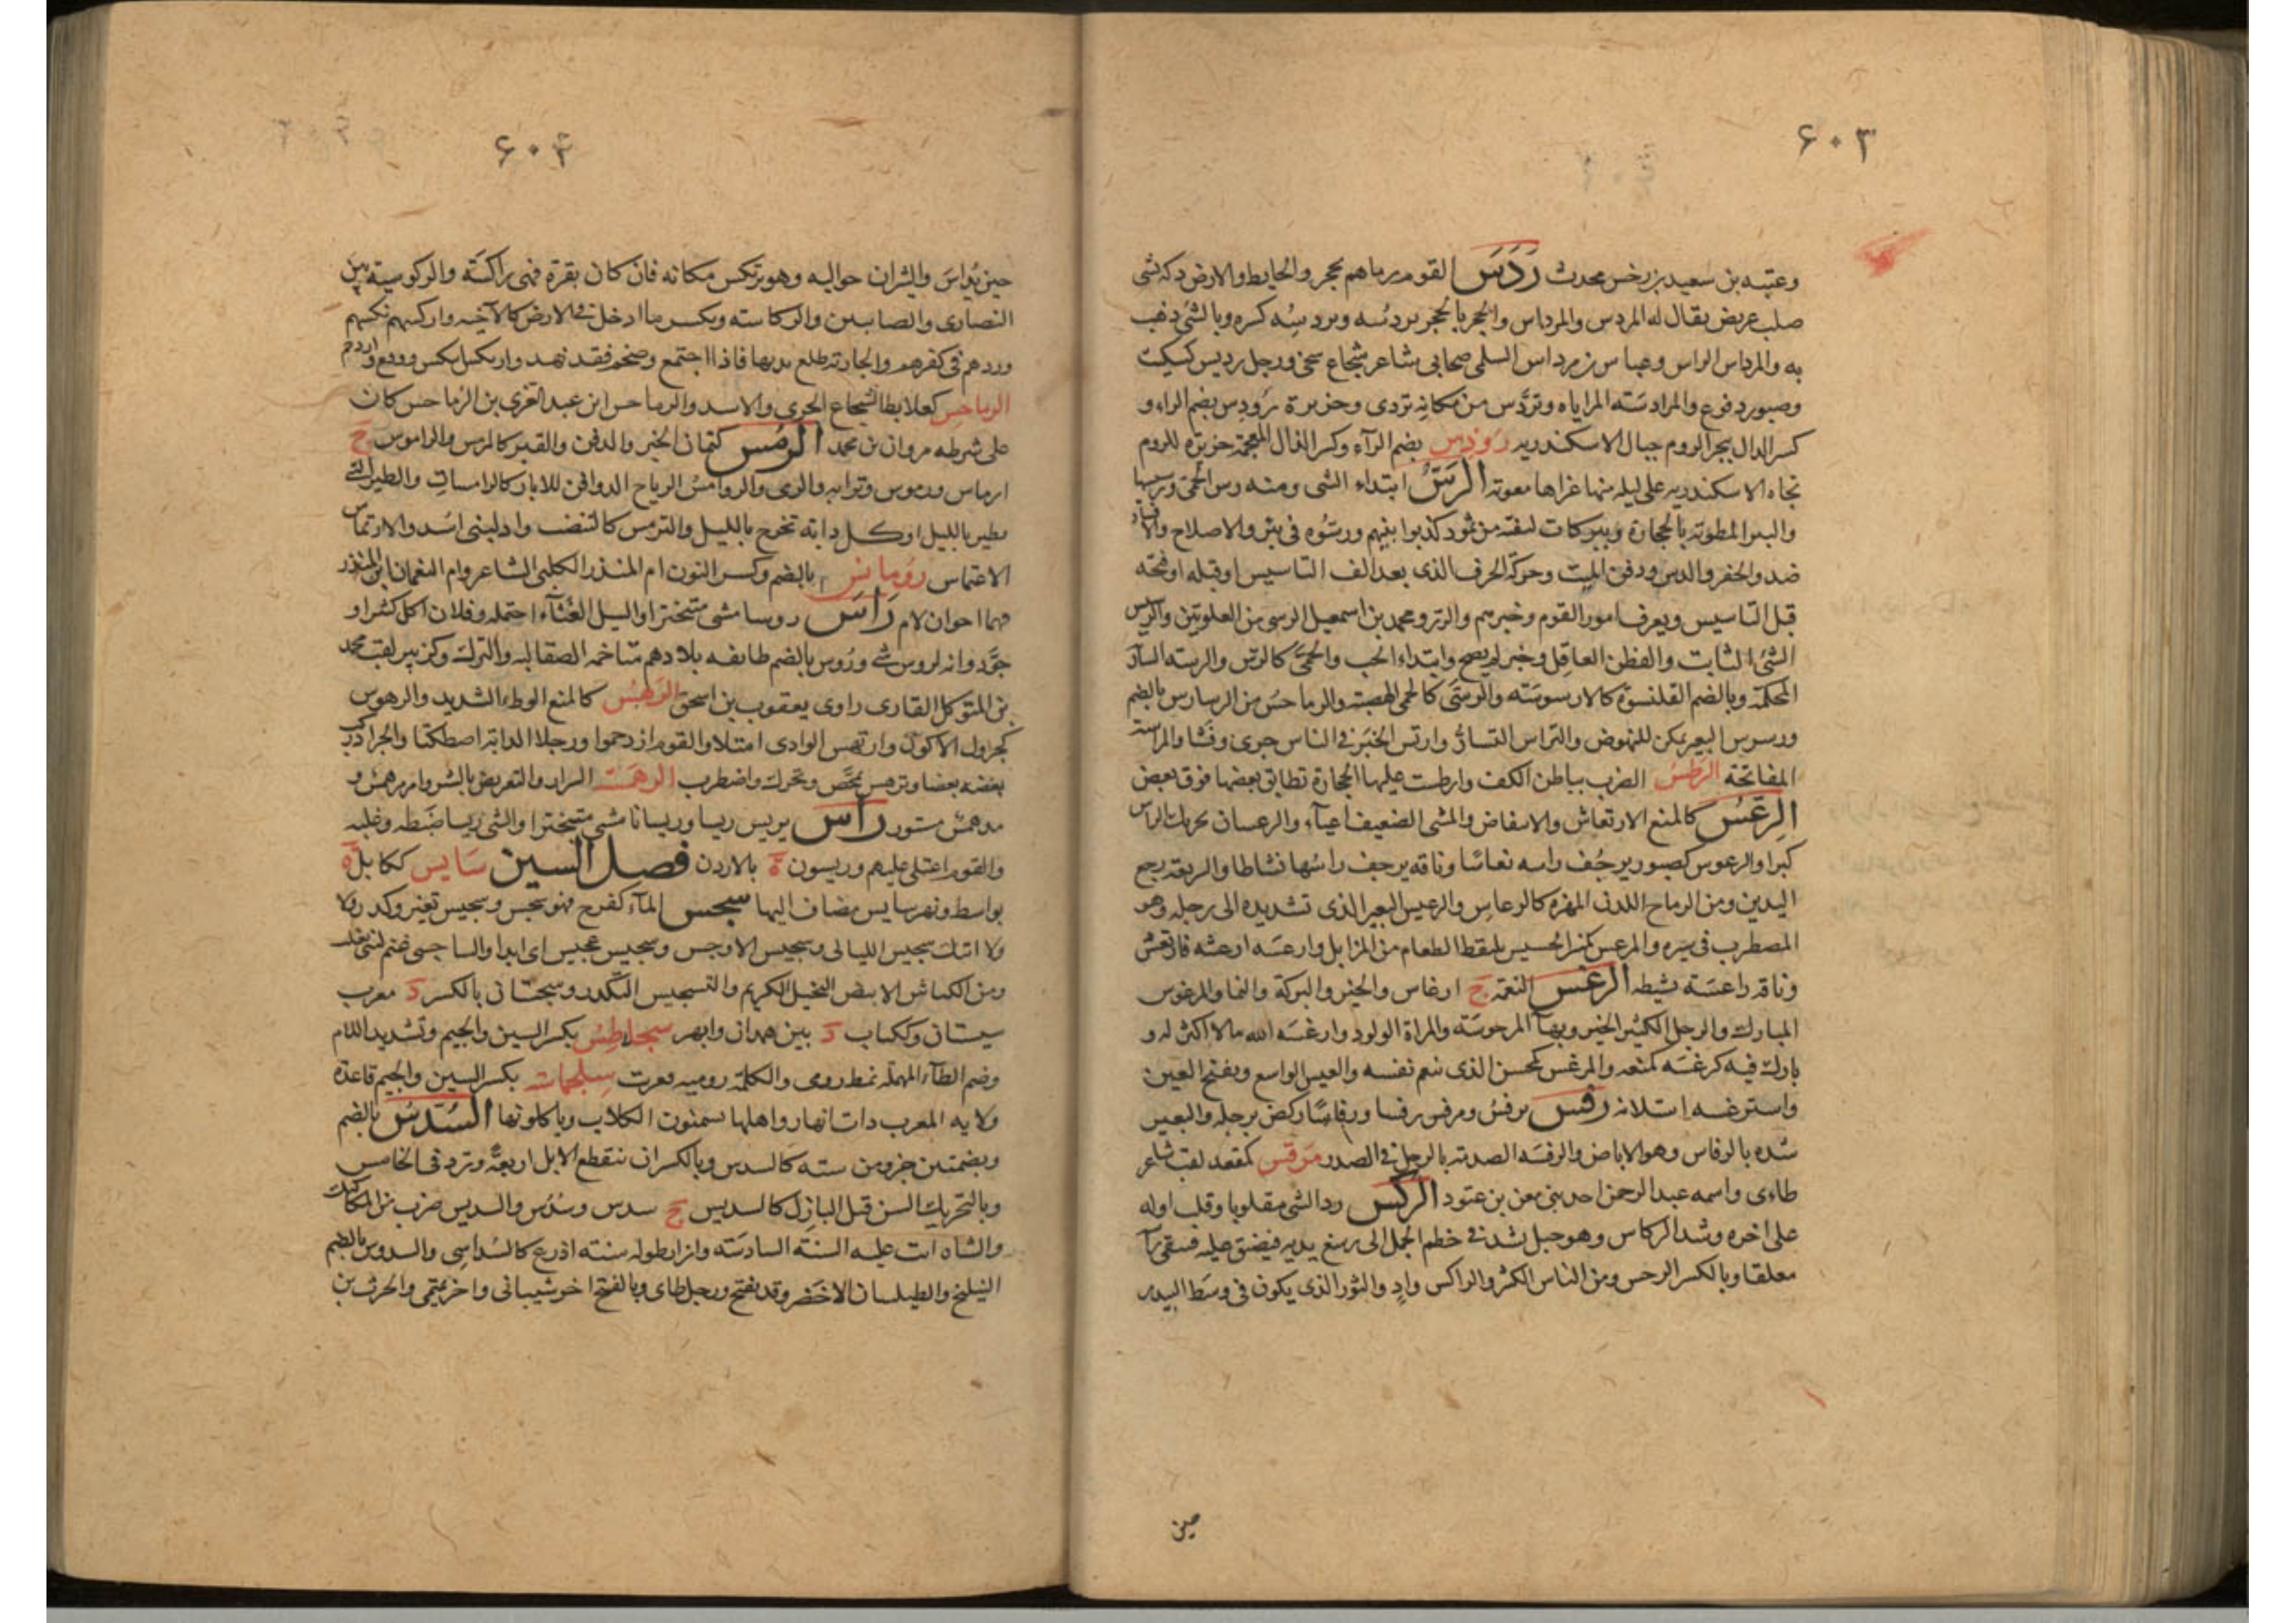 ۶۰۳
وعتبه بن سعيد بن رخس محدث رَدَسَ القوم رماهم بحجر والحايط والارض دكه بشى
صلب عريض يقال له المردس والمرداس والحجر بالحجر يردُسه ويردسِه كسره وبالشئ ذهب
به والمرداس الراس وعباس بن مرداس السلمى صحابى شاعر شجاع سخى ورجل رديس كسكيت
وصبور دفوع والمرادسَته المراياه وتردَّس من مكانه تردى وجزيرة رُودِس بضم الراء و
كسر الدال ببحر الروم حيال الاسكندريه رُوذِس بضم الرآء وكسر الذال المعجمة جزيرة للروم
تجاه الاسكندريه على ليله منها غزاها معوته الرَسّ ابتداء الشى ومنه رس الحمى ورسيسها
والبير المطوته بالحجارة وبير كانت لبقته من ثمود كذبوا نبيهم ورسُّوه فى بئر والاصلاح والافساد
ضد والحفر والدس ودفن الميت وحركة الحرف الذى بعد الف التاسيس او قبله او فتحه
قبل التاسيس ويعرف امور القوم وخبرهم والزبرو محمد بن اسمعيل الرسى من العلويتين والرسيس
الشئ الثابت والفطن العاقل وخبر لم يصح وابتداء الحب والحُمَّى كالرس والريسه السار
المحكمة وبالضم القلنسوة كالارسوسَته والرسَّى كالحمى الهضبته والرماحسُ من الرسارس بالضم
ورسرس البعير تمكن للنهوض والتراس التسارّ وارتس الخبَر فى الناس جرى وفَشا والمراسته
المفاتحة الرَطسُ الضرب بباطن الكف وارطست عليها الحجارة تطابق بعضها فوق بعض
الرِعْسُ كالمنع الارتعاش والانتفاض والمشى الضعيف اعياء والرعسان تحريك الراس
كبرا والرعوس كصبور يرجُف راسه نعاسًا وناقه يرجف راسُها نشاطا والسريعته رجع
اليدين ومن الرماح اللدنى المهزه كالرعاسِ والرعيس البعير الذى تشديده الى رجله وهو
المضطرب فى سيره والمرعس كمنبر الخسيس يلتقط الطعام من المزابل وارعسَه ارعشه فارتعش
وناقه راعسَة نشيطه الرغسُ النعته ج ارغاس والخير والبركة والنما والمرغوس
المبارك والرجل الكثير الخير وبهآ المرحوسَته والمراة الولود وارغسَه الله مالا اكثر له و
بارك فيه كرغسَه كمنعه والمرغس كمحسن الذى ينعم نفسه والعيس الواسع وبفتح الغين
واسترغسه استلانه رفس يرفسُ ومرفس رفسا ورفاسًا ركض برجله والبعير
شده بالرفاس وهو الاباض والرفسَه الصدمته بالرجل فى الصدر مَرقس كمقعد لقب شاعر
طاءى واسمه عبد الرحمن احد بنى معن بن عتود الركسُ رد الشئ مقلوبا وقلب اوله
على اخره وشد الركاس وهو حبل شد فى خطم الجمل الى رسغ يديه فيضيق عليه فيبقى رآ
معلقا وبالكسر الرجس ومن الناس الكثر والراكس وادٍ والثور الذى يكون فى وسَط البيدر
حين
۶۰۴
حين يُداسَ والثيران حواليه وهو يرتكس مكانه فان كان بقرة فهى راكسَة والركوسية بين
النصارى والصابين والركاسته ويكسر ما ادخل فى الارض كالآخيه واركسهم نكسهم
وردهم فى كفرهم والجارته طلع ثديها فاذا اجتمع وضخم فقد نهد وارتكس انكس ووقع وازدحم
الرماحِس كعلابط الشجاع الجرى والاسد والرماحس ابن عبد العزى بن الرُماحس كان
على شرطه مروان بن محمد الرمسُ كتمان الخبر والدفن والقبر كالمرمس والراموس ج
ارماس ورموس وترابه والرمى والروامسُ الرياح الدوافن للاثار كالرامسات والطير التى
تطير بالليل او كل دابته تخرج بالليل والترمس كالتنضب واد لبنى اسَد والارتماس
الاغتماس رُومانِس بالضم وكسر النون ام المنذر الكلبى الشاعر وام النعمان ابن المنذر
فهما اخوان لام رَاسَ روسا مشى متبخترا والسيل الغُثآء احتمله وفلان اكل كثيرا و
جوَّد وانه لروس شئ ورُوس بالضم طايفه بلادهم متاخمه الصقالبه والترك وكزبير لقب محمد
بن المتوكل القارى راوى يعقوب بن اسحق الرَهسُ كالمنع الوطء الشديد والرهوس
كجرول الاكول وارتهس الوادى امتلا والقوم ازدحموا ورجلا الدابة اصطكتا والجراد ركب
بعضه بعضا وترهس تمخَّض وتحرك واضطرب الرهمَسَة السرار والتعريض بالشر وامر مرهمس و
مدهمس مستور رَاسَ يريس ريسا وريسانا مشى متبخترا والشى ريسا ضَبطه وغلبه
والقوم اعتلى عليهم وريسون ة بالاردن فصل السين سَايس ككابل ة
بواسط ونهر سايس مضاف اليها سجسَ المآء كفرح فهو سَجس وسجيس تغير وكدر ولا
ولا اتيك سجيس الليالى وسجيس الاوجس وسجيس عجيس اى ابدا والساجسى غنم لبنى تغلب
ومن الكباش الابيض الفحيل الكريم والتسجيس التكدر وسجستانى بالكسر د معرب
سيستان وككتاب د بين همدان وابهر سجلاطسُ بكسر السين والجيم وتشديد اللام
وضم الطآء المهملة نمط رومى والكلمة روميه فعربت سِجلماسَة بكسر السين والجيم قاعدة
ولايه المغرب ذات انهار واهلها يسمنون الكلاب وياكلونها السُدسُ بالضم
وبضمتين جزو من سته كالسديس وبالكسر ان تنقطع الابل اربعةً وترد فى الخامس
وبالتحريك السن قبل البازل كالسديس ج سدس وسُدُس والسديس ضرب من المكاكيك
والشاه اتت عليه السنة السادسَته وازار طوله ستة اذرع كالسُداسِى والسدوس بالضم
النيلنج والطيلسان الاخضر وقد يفتح ورجل طاى وبالفتح اخر شيبانى واخر تميمى والحرث بن